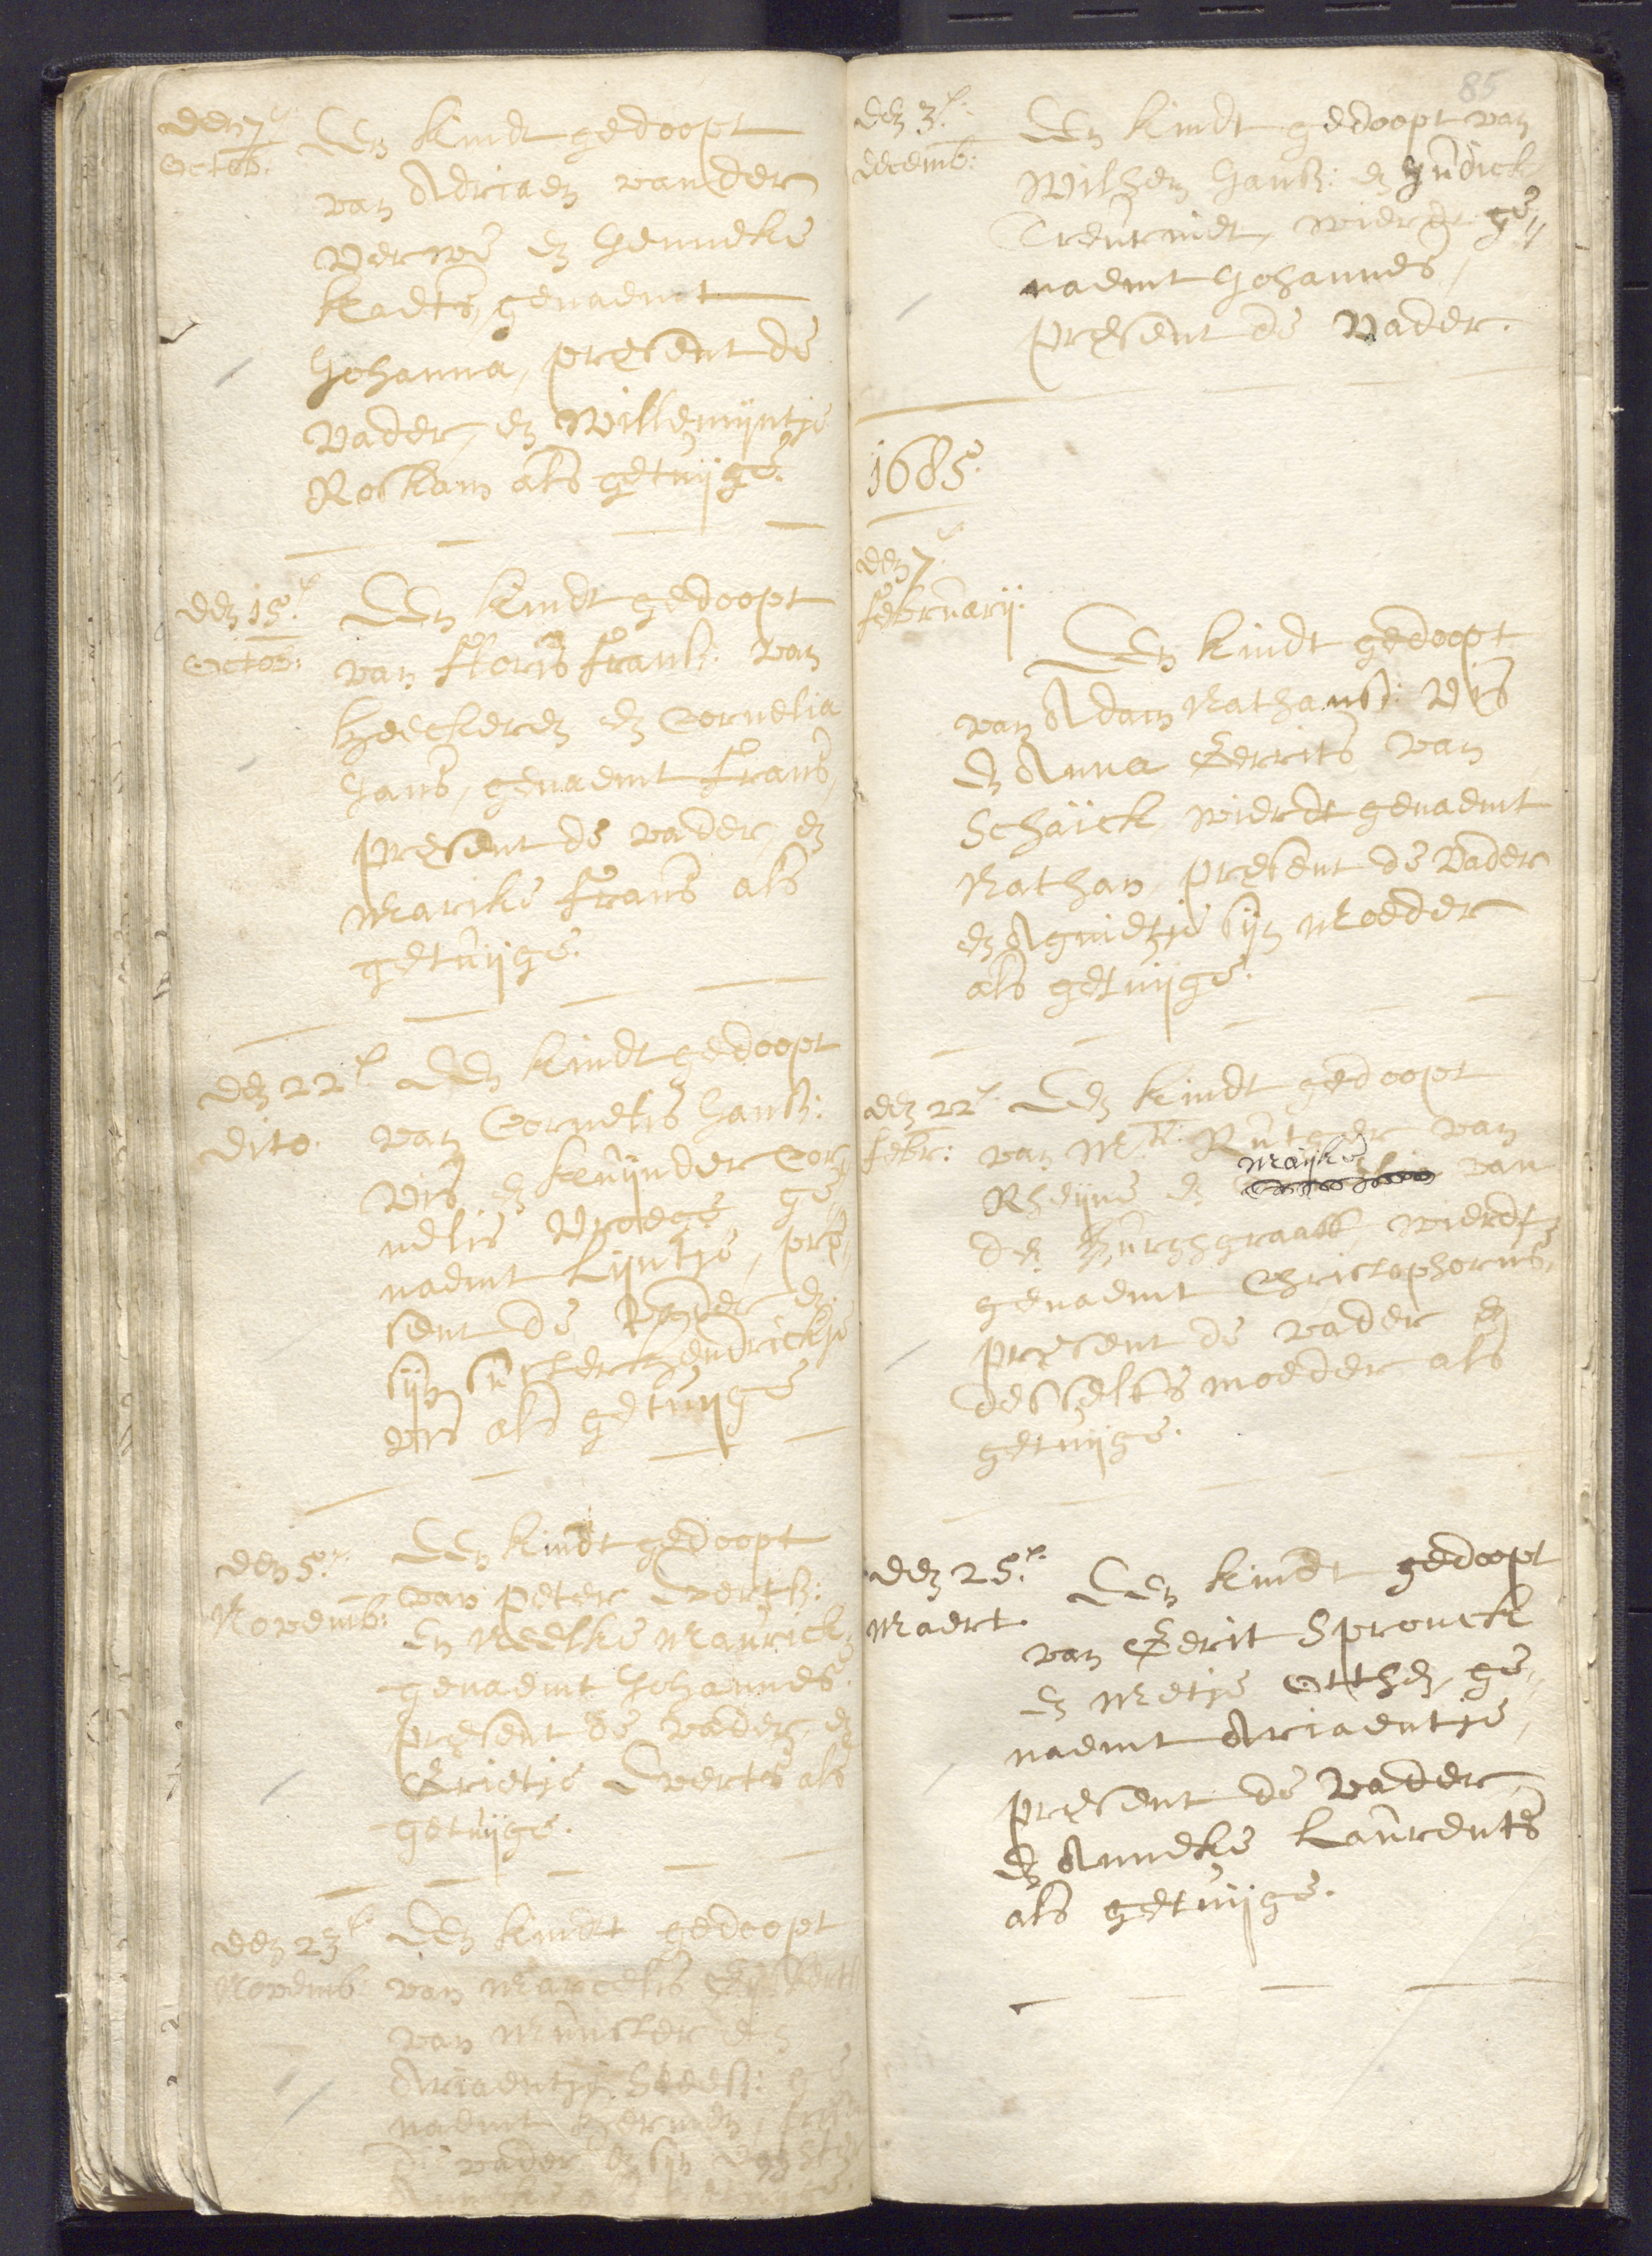 den 7e
Octob:
Een kindt gedoopt
van Adriaen vander
Verwe en Henneke
kaets, genaemt
Johanna, present de
Vader, en Willemijntje
Roskam als getuijge.
den 15e
Octob:
Een kindt gedoopt
van Floris Fransz: van
Heeckeren en Cornelia
Jans, genaemt Frans,
present de vader, en
Marike Frans als
getuijge.
den 22e
dito.
Een kindt gedoopt
van Cornelis Jansz:
Vis, en kuijnder Cor-
nelis Vroege, ge-
naemt Lijntje, pre-
sent de Vader en
sijn suster Hendrickje
Vis als getuijge
den 5e
Novemb:
Een kindt gedoopt
van Peter Evertsz:
En Neelke Maurick,
genaemt Johannes.
present de vader, en
Grietje Everts als
getuijge.
den 23e
Novemb:
Een kindt gedoopt
van Marcelis
van Munster en
Ariaentje ge
naemt Hermen,
de vader en sijn
85
den 3e
decemb:
Een kindt gedoopt van
Wilhem Jansz: en Judick
wierdt ge-
naemt Johannes,
present de Vader.
1685.
den 7e
februarij.
Een kindt gedoopt
van Adam Nathansz: Vis
En Anna Gerrits van
Schaick, wierdt genaemt
Nathan, present de Vader
en Agnietje sijn Moeder
als getuijge.
den 22e
febr:
Een kindt gedoopt
van Mr: Rutger van
Maijke
Rheijne en van
den Burghgraaff, wierdt
genaemt Christophorus,
present de vader en
desselfs moeder als
getuijge.
den 25e
Maert.
Een kindt gedoopt
van Gerit Spronck
En Metje Otthen, ge-
naemt Ariaentje,
present de Vader,
En Anneke Laurents
als getuijge.